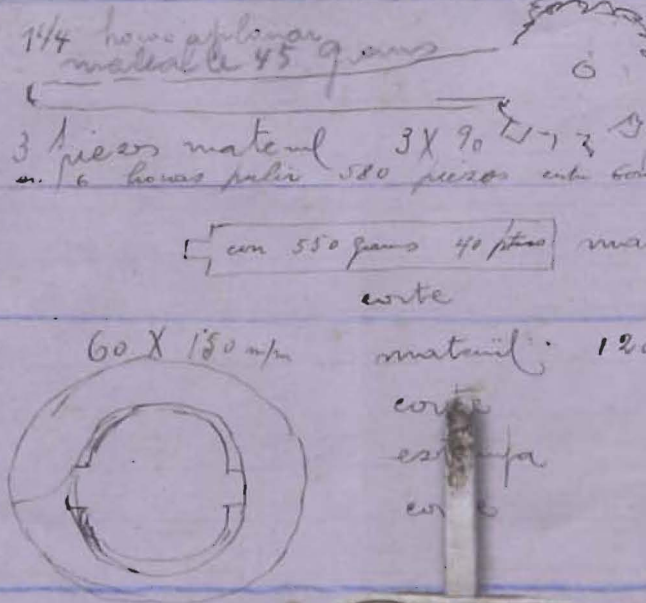 1 1/4 horas aplanar
material 45 grams
3 piezas material 3 X 90
6 horas pulir 580 piezas entre
con 550 grams 40 ptas
corte
60 X 150 m/m
material: 120
corte
estampa
corte